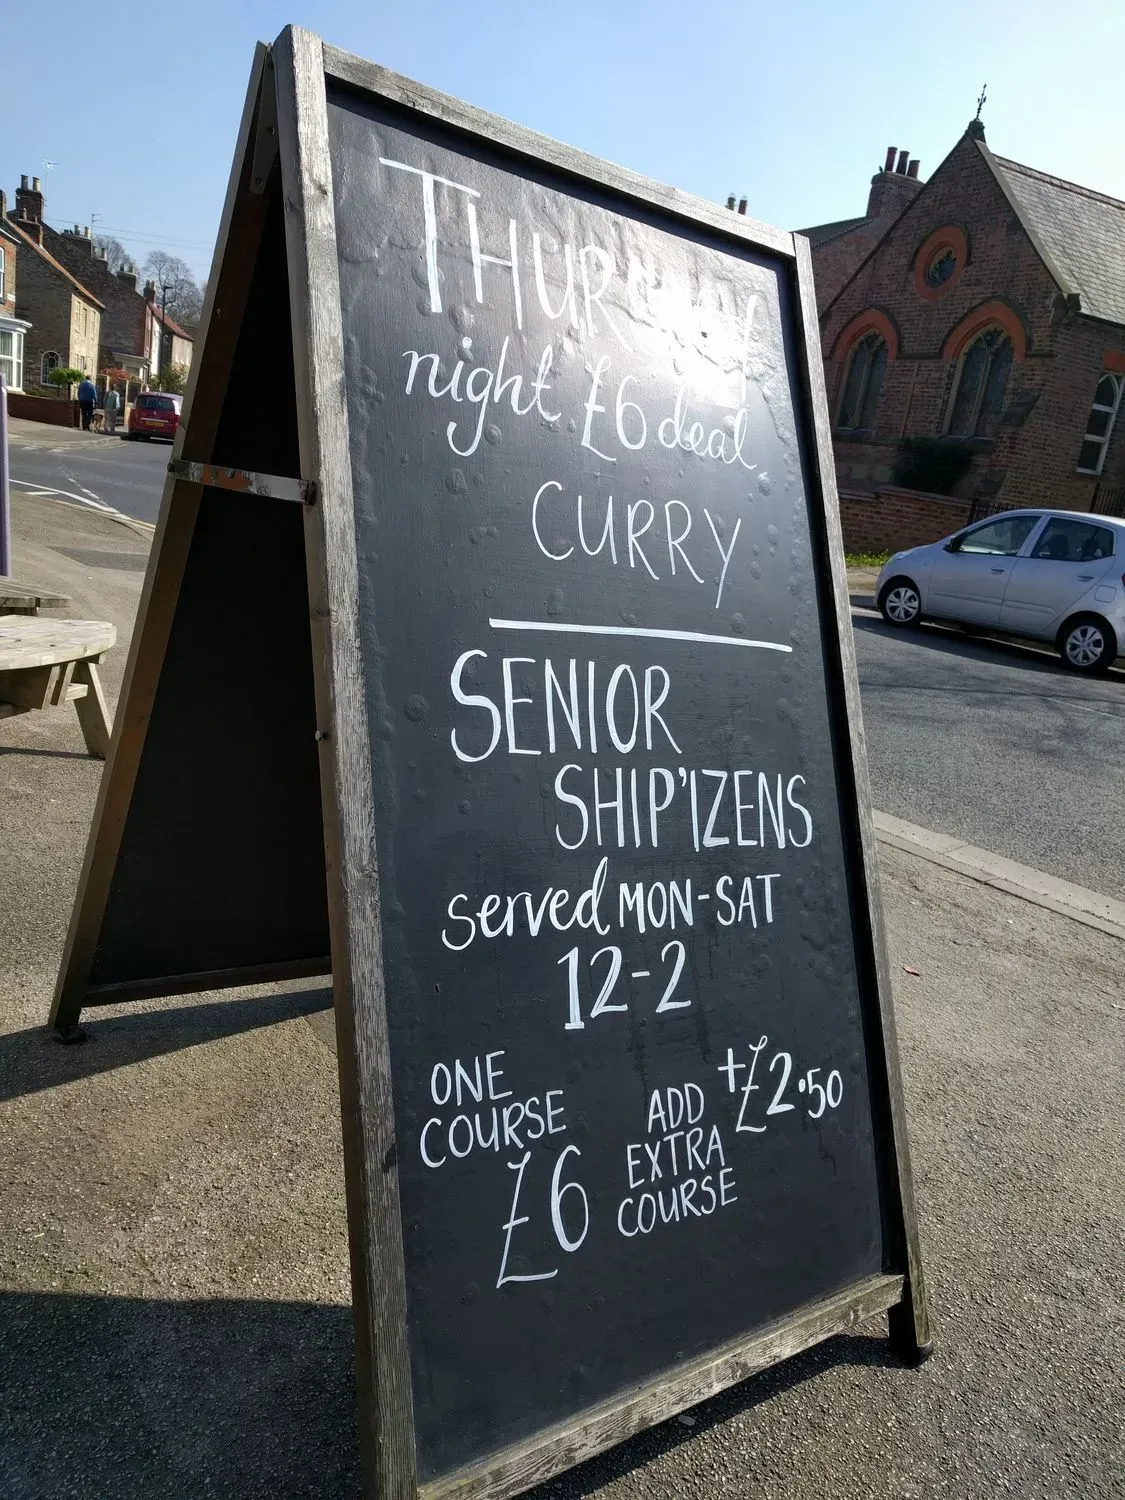 THURSDAY
night £6 deal
CURRY
SENIOR
SHIP'IZENS
served MON-SAT
12-2
ONE
COURSE
£6
ADD
EXTRA
COURSE
+£2.50